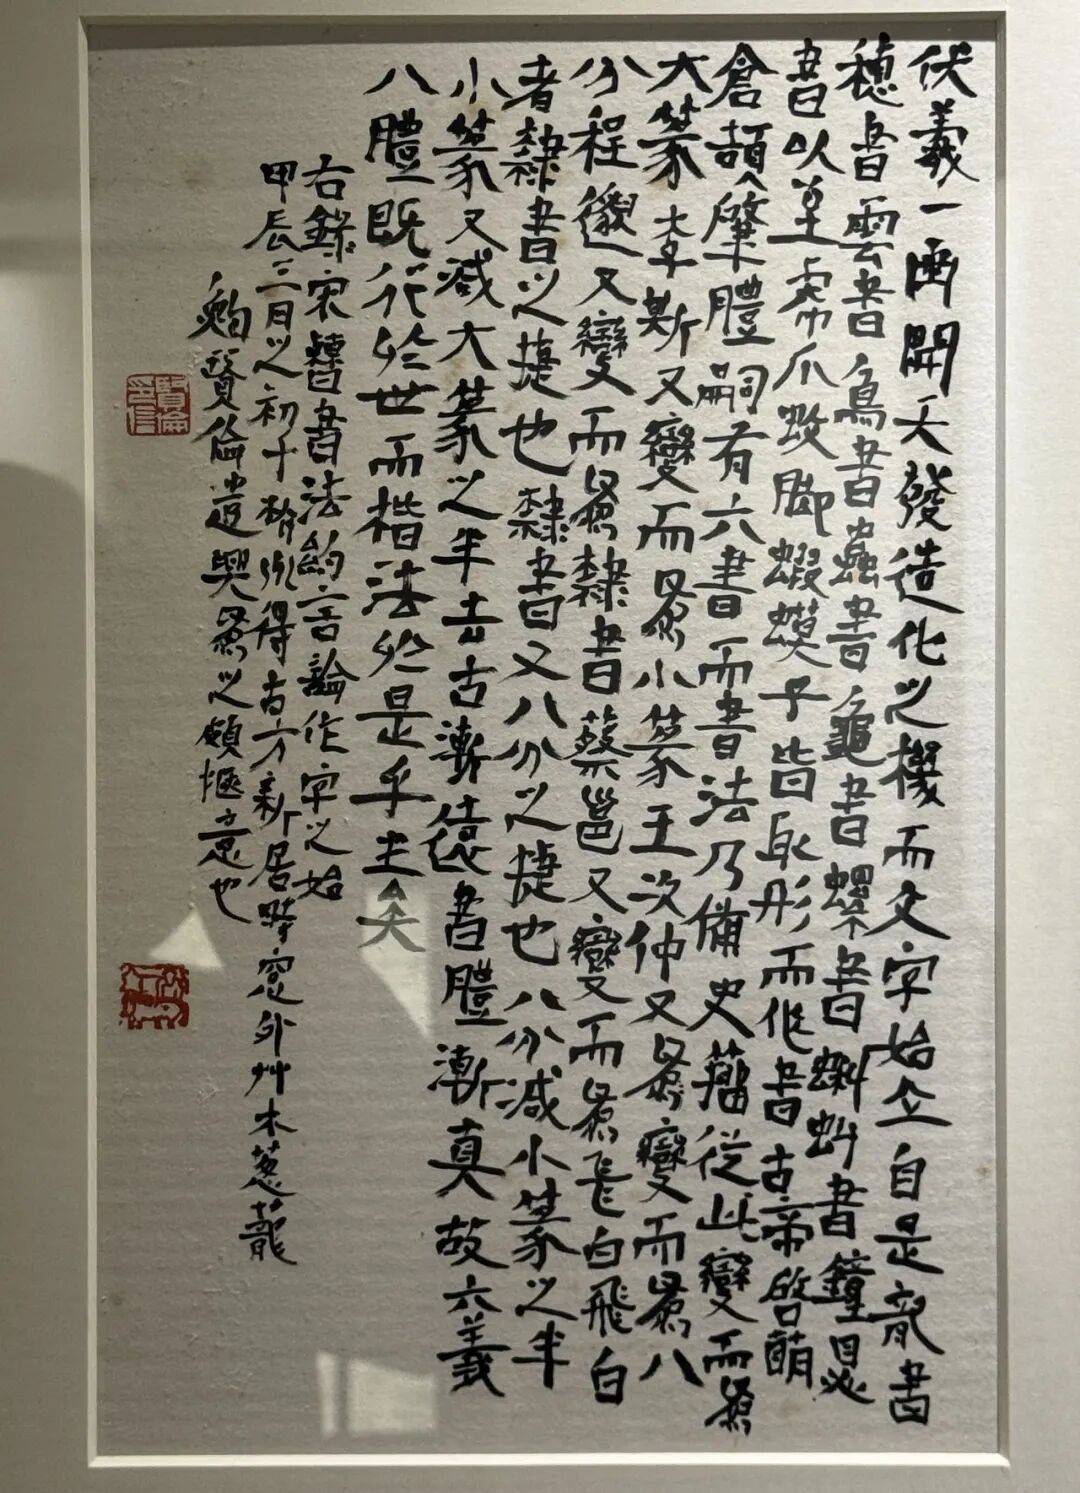 伏羲一画開天發造化之機而文字始立自是龍書
穗書雲書鳥書蟲書龜書螺書蝌蚪書鐘鼎
書以至虎爪蚊脚蝦蟆子皆取形而作書古帝啓萌
倉頡肇體嗣有六書而書法乃備史籀從此變而爲
大篆李斯又變而爲小篆王次仲又爲變而爲八
分程邈又變而爲隸書蔡邕又變而爲飛白飛白
者隸書之捷也隸書又八分之捷也八分減小篆之半
小篆又減大篆之半去古漸遠書體漸真故六義
八體既行於世而楷法於是乎生矣
右錄宋曹書法約言論作字之始
甲辰三月之初于 得古方新居時窗外艸木葱蘢
鮑賢倫遣興爲之頗愜意也
賢倫印信